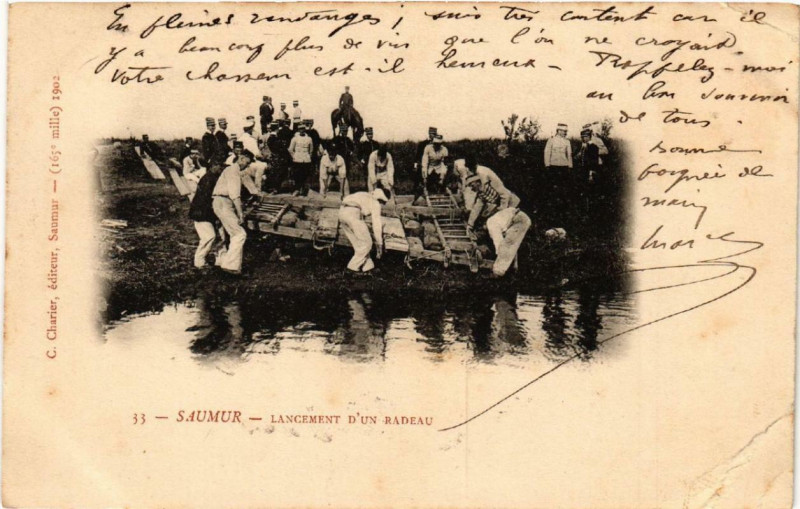 En pleines vendanges ; suis très content car il
y a beaucoup plus de vin que l'on ne croyait.
Votre chasseur est-il heureux – Rappelez-moi
au bon souvenir
de tous.
Bonne
poignée de
main
Marcel
C. Charier, éditeur, Saumur — (165e mille) 1902
33 — SAUMUR — LANCEMENT D'UN RADEAU